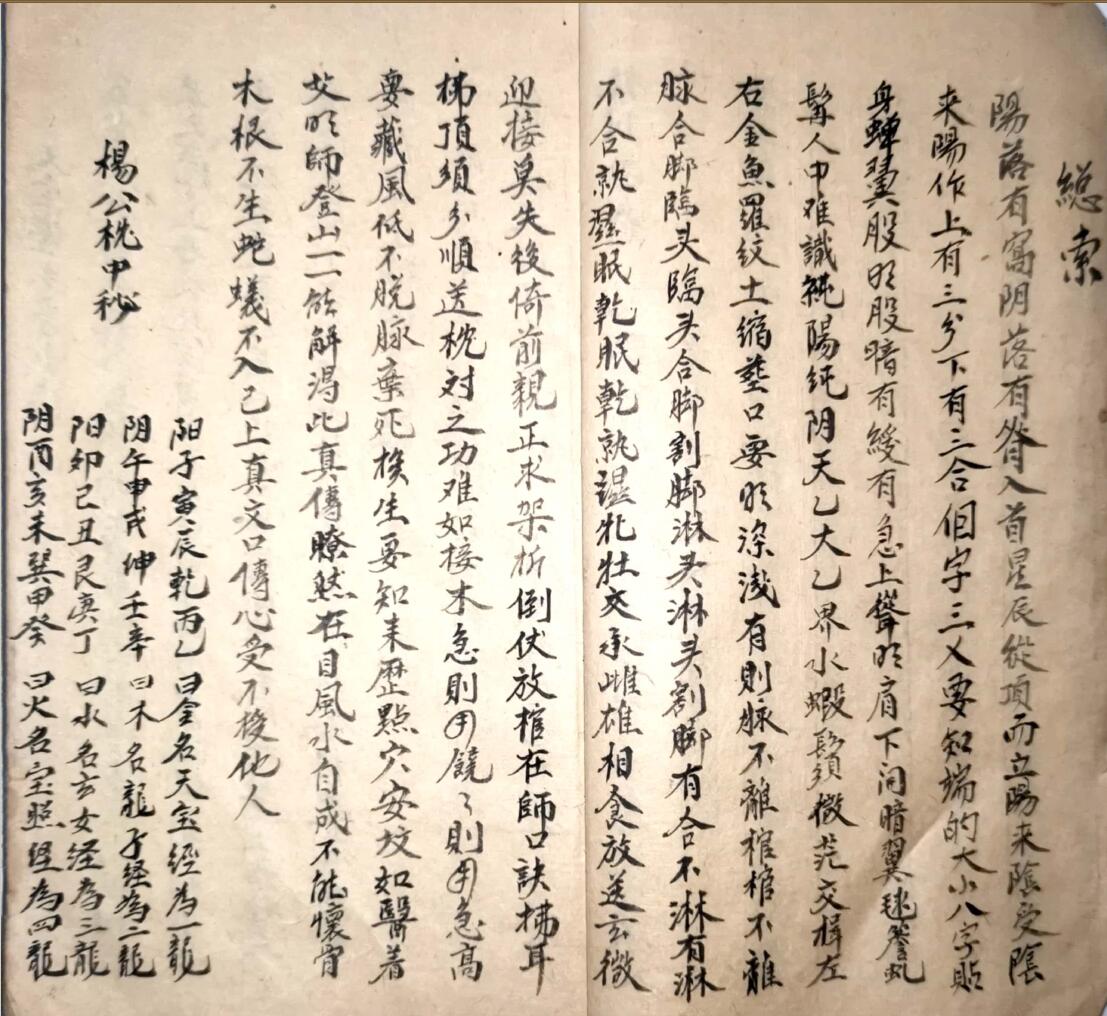 總索
陽落有窩阴落有脊入首星辰從項而立陽来陰受陰
来陽作上有三分下有三合個字三乂要知端的大小八字貼
身蟬翼股明股暗有緩有急上聳明肩下向暗翼毬簷虬
髯人中难識純陽純阴天乙太乙界水蝦鬚微茫交揖左
右金魚羅紋土缩塟口要明深浅有則脉不離棺棺不離
脉合脚臨头臨头合脚割脚淋头淋头割脚有合不淋有淋
不合孰濕眠乾眠乾孰濕牝牡交承雌雄相食放送玄微
迎接莫失後倚前親正求架折倒伏放棺在師口訣拂耳
拂頂須分順送枕对之功难如接木急則用饒々則用急高
要藏風低不脱脉棄死挨生要知来歷點穴安坟如醫着
艾明師登山一一能解渴此真傳瞭然在目風水自成不能懷骨
木根不生虵蟻不入已上真文口傳心受不棱他人
楊公枕中秘
阳子寅辰乾丙乙曰金名天宝經為一龍
阴午申戌坤壬辛曰木名龍子經為二龍
阳卯巳丑艮庚丁曰水名玄女経為三龍
阴酉亥未巽甲癸曰火名宝照经為四龍